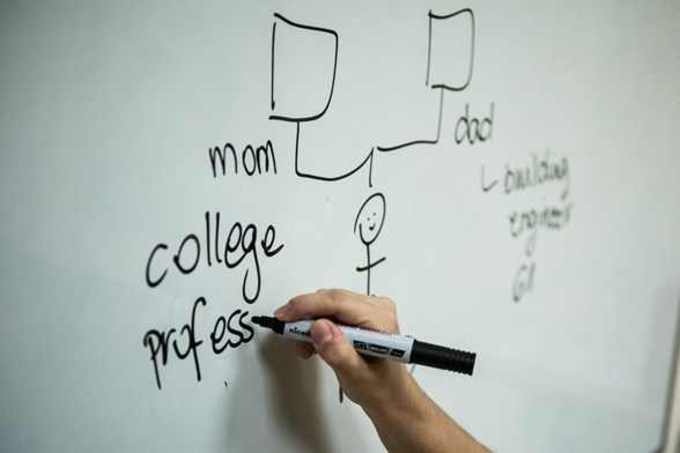 mom
dad
college
profess
building
engineer